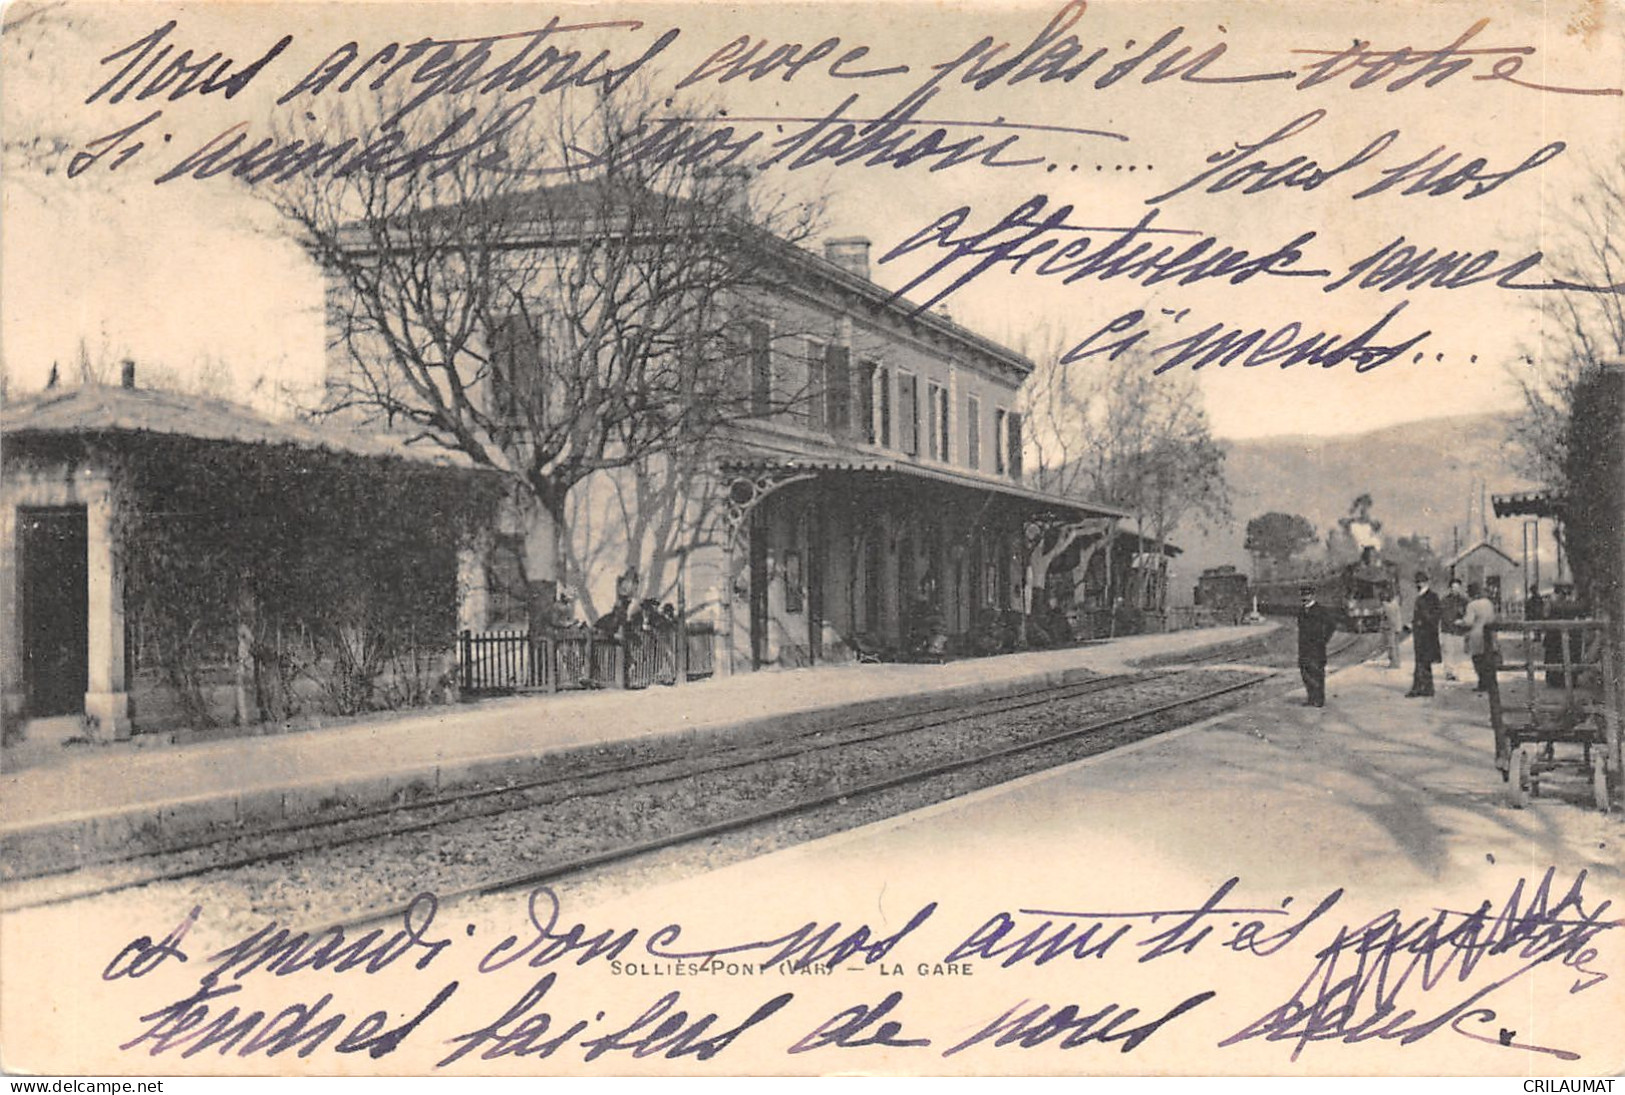 Nous acceptons avec plaisir votre
si aimable invitation...... Tous nos
affectueux remer
ciments...
à mardi donc nos amitiés
SOLLIÈS-PONT (VAR) — LA GARE
tendres baisers de nous deux.
delcampe.net
CRILAUMAT